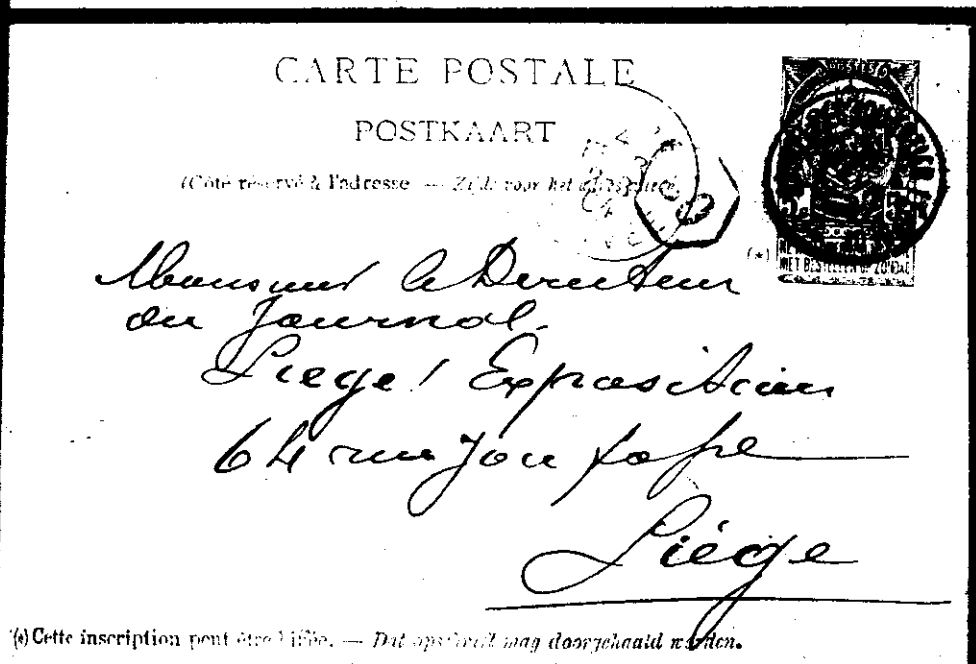 CARTE POSTALE
POSTKAART
(Côté réservé à l'adresse — Zijde voor het
(*)
NIET BESTELLEN OP ZONDAG
Monsieur le Directeur
du Journal
Liege! Exposition
64 rue
Liége
(*) Cette inscription peut être biffée. — Dit opschrift mag doorgehaald worden.